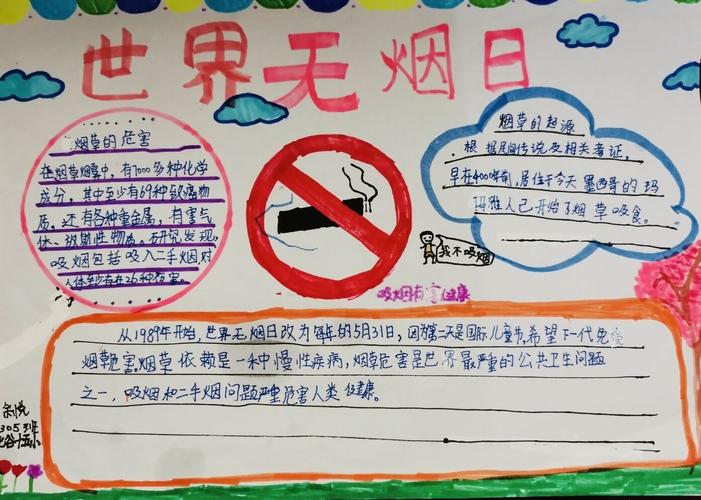 世界无烟日
烟草的危害
在烟草烟雾中，有7000多种化学
成分，其中至少有69种致癌物
质，还有各种重金属，有害气
体、放射性物质。研究发现，
吸烟包括吸入二手烟，对
人体到少有26种危害。
烟草的起源
根据民间传说及相关考证，
早在400年前，居住于今天墨西哥的玛
玛雅人已开始了烟草吸食。
我不吸烟
吸烟有害健康
从1989年开始，世界无烟日改为每年的5月31日，因为第二天是国际儿童节，希望下一代免受
烟草危害。烟草依赖是一种慢性疾病，烟草危害是世界最严重的公共卫生问题
之一，吸烟和二手烟问题严重危害人类健康。
305班